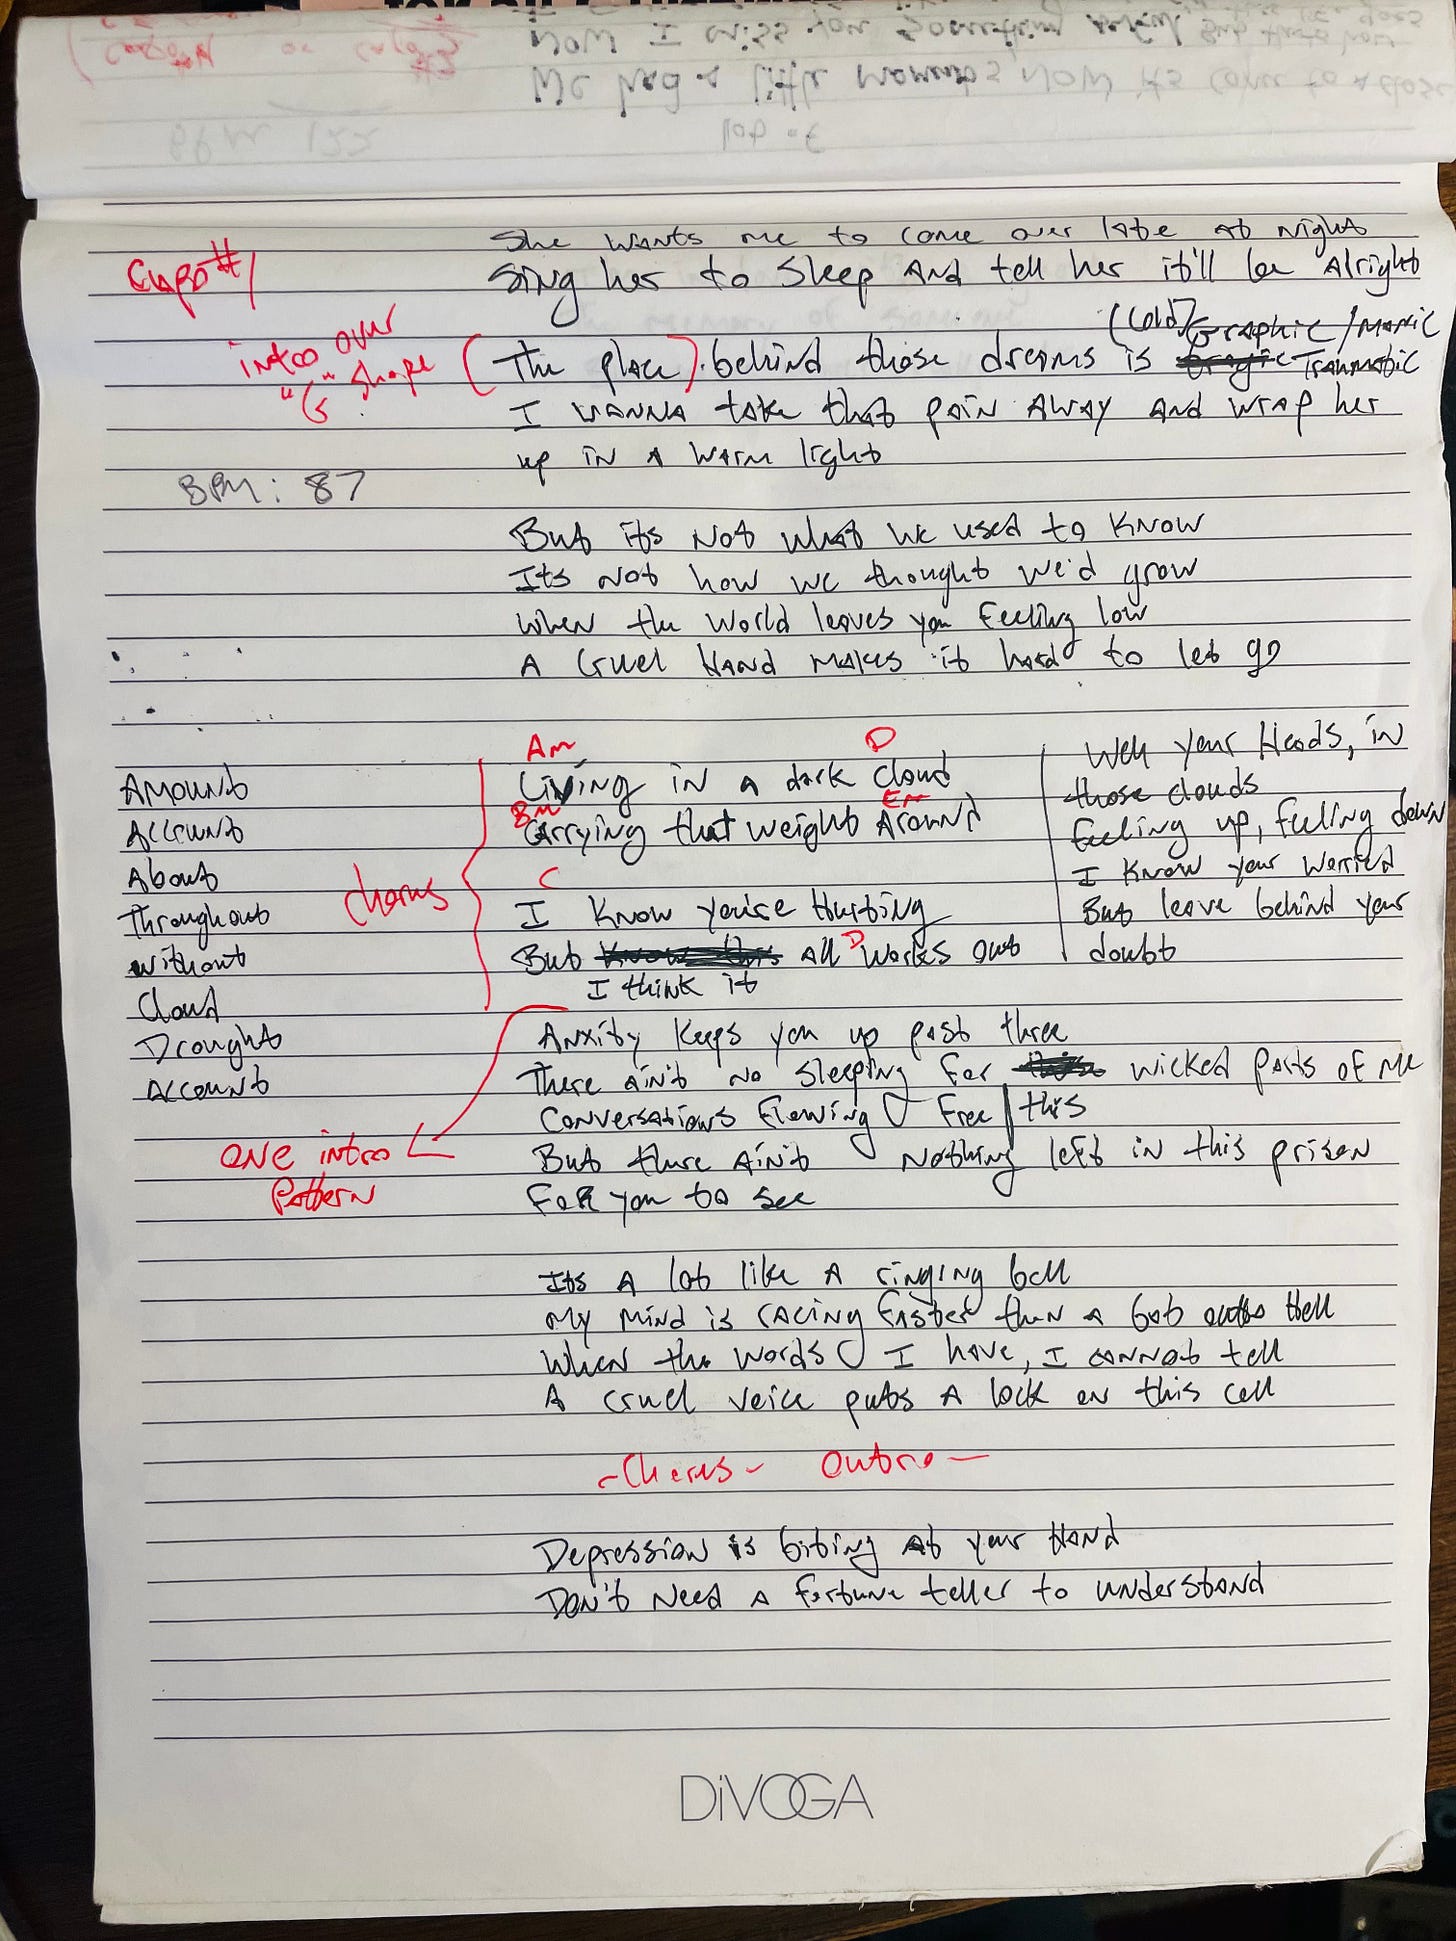 Now I miss you something awful but that's how
We had a little moments, now its come to a close
BPM 122
She wants me to come over late at night
Capo #1
Sing her to Sleep And tell her it'll be Alright
(Cold)/Graphic/Manic
intro over "G" shape
(The place) behind those dreams is Traumatic
I wanna take that pain Away And wrap her
up in a warm light
BPM: 87
But its Not what we used to Know
Its Not how we thought we'd grow
When the World leaves you feeling low
A Cruel Hand makes it hard to let go
Am D
Living in a dark cloud
Bm Em
Carrying that weight Around
C
I Know you're Hurting
But All D Works out
I think it
Well your Heads, in
those clouds
Feeling up, feeling down
I Know your worried
But leave behind your
doubt
chorus
Amount
Account
About
Throughout
without
Cloud
Drought
Account
Anxity Keeps you up past three
There ain't no sleeping for wicked parts of me
Conversations flowing Free | this
But there Ain't Nothing left in this prison
For you to see
One intro
Pattern
Its A lot like A ringing bell
My Mind is racing faster then a bat outta Hell
When the words I have, I cannot tell
A cruel voice puts A lock on this cell
- Chorus - Outro -
Depression is biting at your Hand
Don't Need A fortune teller to understand
DiVOGA